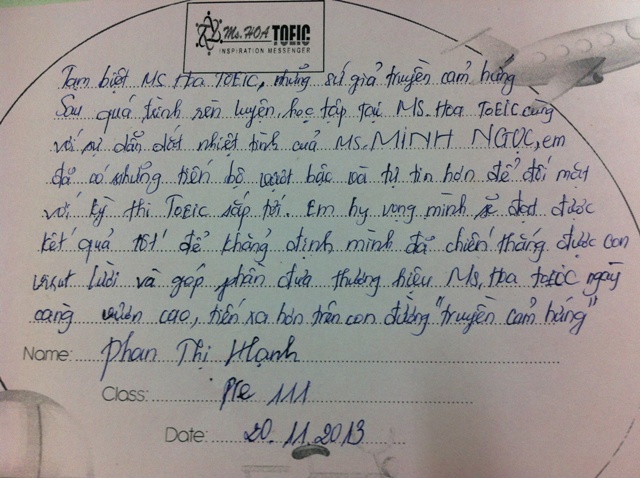 Ms. HOA TOEIC
INSPIRATION MESSENGER
Tạm biệt Ms Hoa TOEIC, những sứ giả truyền cảm hứng
Sau quá trình rèn luyện, học tập tại MS. Hoa TOEIC cùng
với sự dẫn dắt nhiệt tình của MS. MINH NGỌC, em
đã có những tiến bộ vượt bậc và tự tin hơn để đối mặt
với kỳ thi TOEIC sắp tới. Em hy vọng mình sẽ đạt được
kết quả tốt để khẳng định mình đã chiến thắng được con
virut lười và góp phần đưa thương hiệu Ms, Hoa TOEIC ngày
càng vươn cao, tiến xa hơn trên con đường "truyền cảm hứng"
Name: Phan Thị Hạnh
Class: Pre 111
Date: 20.11.2013